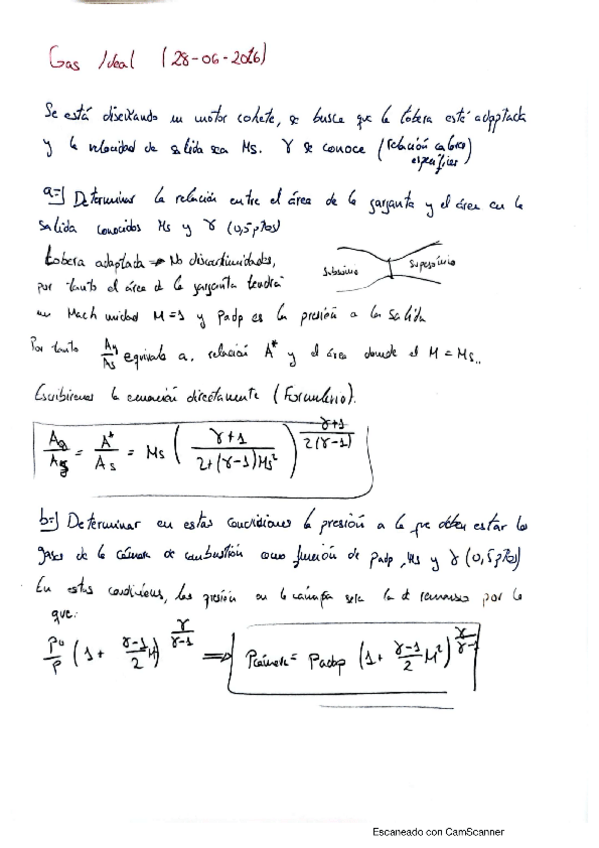 Gas Ideal (28-06-2016)
Se está diseñando un motor cohete, se busca que la tobera esté adaptada
y la velocidad de salida sea Ms. γ se conoce (relación calores
específicos)
a=) Determinar la relación entre el área de la garganta y el área en la
salida conocidos Ms y γ (0,5 ptos)
Tobera adaptada → No discontinuidades,
por tanto el área de la garganta tendrá
un Mach unidad M=1 y Padp es la presión a la salida
Subsónico
Supersónico
Por tanto Ag/As equivale a relación A* y el área donde el M = Ms..
Escribiremos la ecuación directamente (Formulario).
Ag/As = A*/As = Ms ( γ+1 / 2+(γ-1)Ms² )^(γ+1 / 2(γ-1))
b=) Determinar en estas condiciones la presión a la que deben estar los
gases de la cámara de combustión como función de Padp, Ms y γ (0,5 ptos)
En estas condiciones, la presión en la cámara será la de remanso por lo
que:
Po/P (1 + γ-1/2 M)^(γ/γ-1) ⟹ Pcámara = Padp (1 + γ-1/2 M²)^(γ/γ-1)
Escaneado con CamScanner